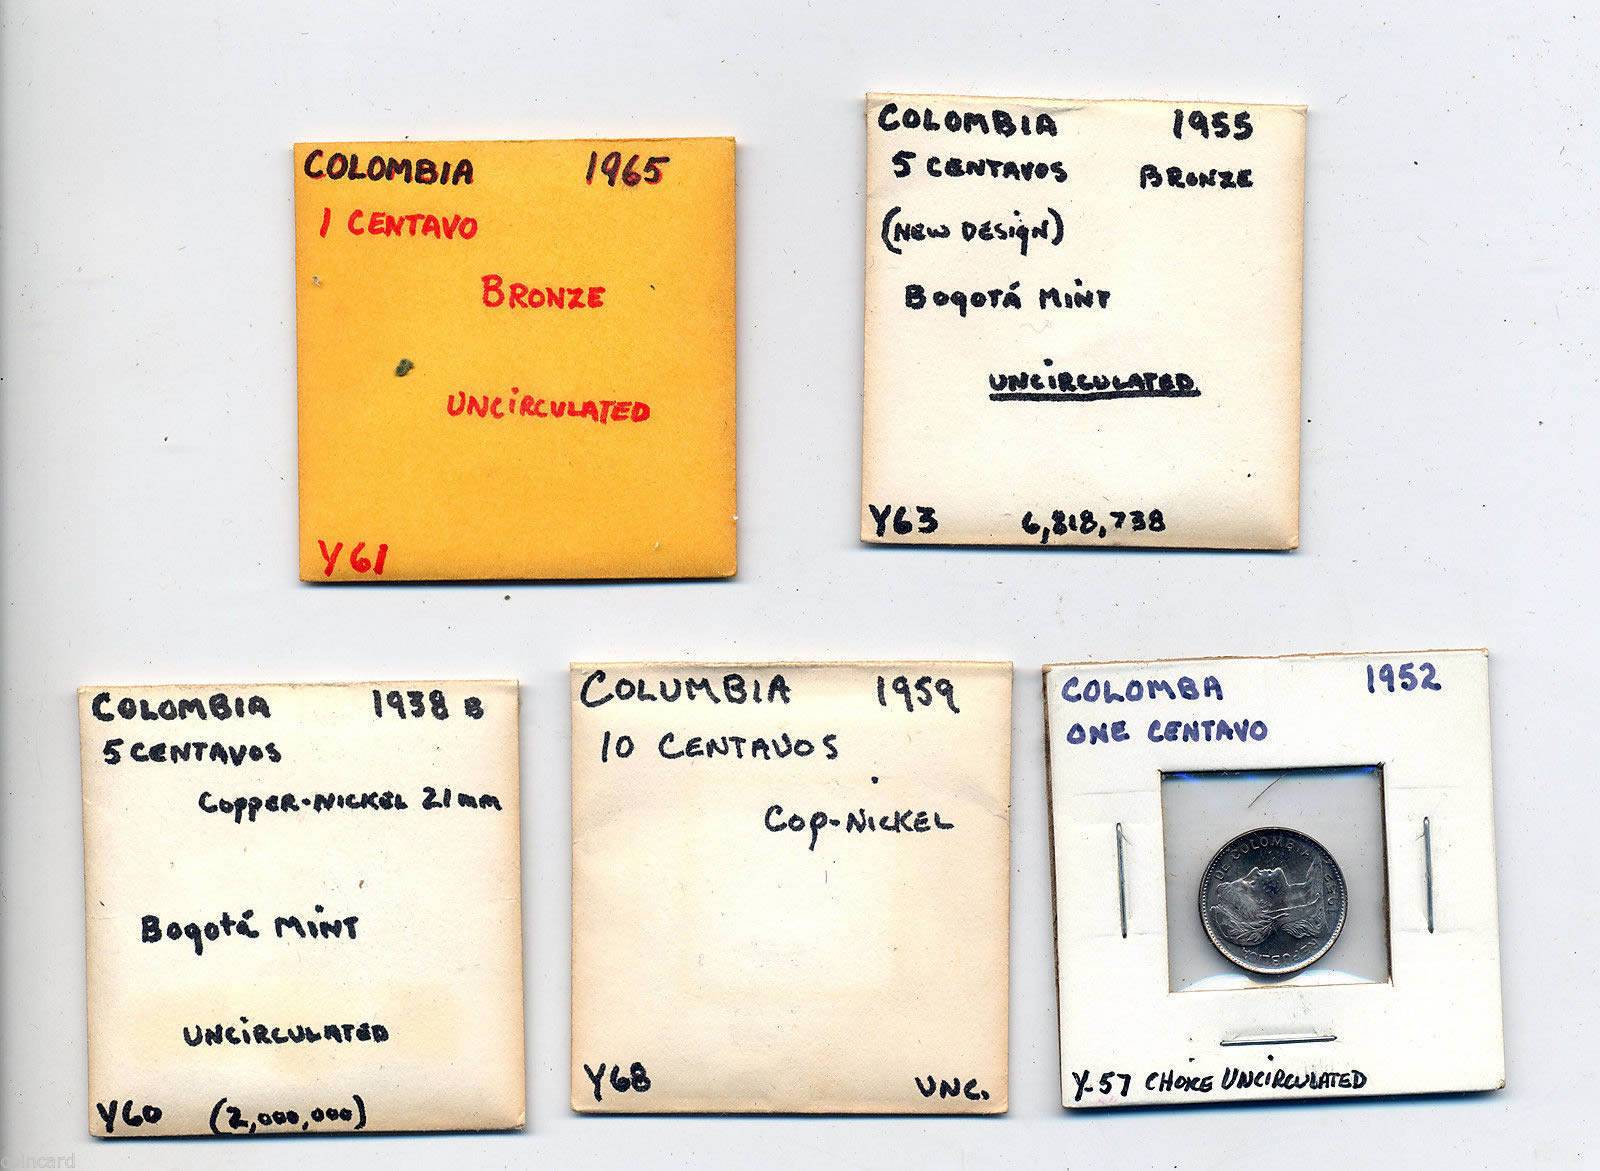 COLOMBIA 1965
1 CENTAVO
BRONZE
UNCIRCULATED
Y61
COLOMBIA 1955
5 CENTAVOS BRONZE
(NEW DESIGN)
Bogotá MINT
UNCIRCULATED
Y63 6,818,738
COLOMBIA 1938 B
5 CENTAVOS
COPPER-NICKEL 21mm
Bogotá MINT
UNCIRCULATED
Y60 (2,000,000)
COLUMBIA 1959
10 CENTAVOS
COP-NICKEL
Y68 UNC.
COLOMBA 1952
ONE CENTAVO
REPUBLICA DE COLOMBIA
Y-57 CHOICE UNCIRCULATED
coincard